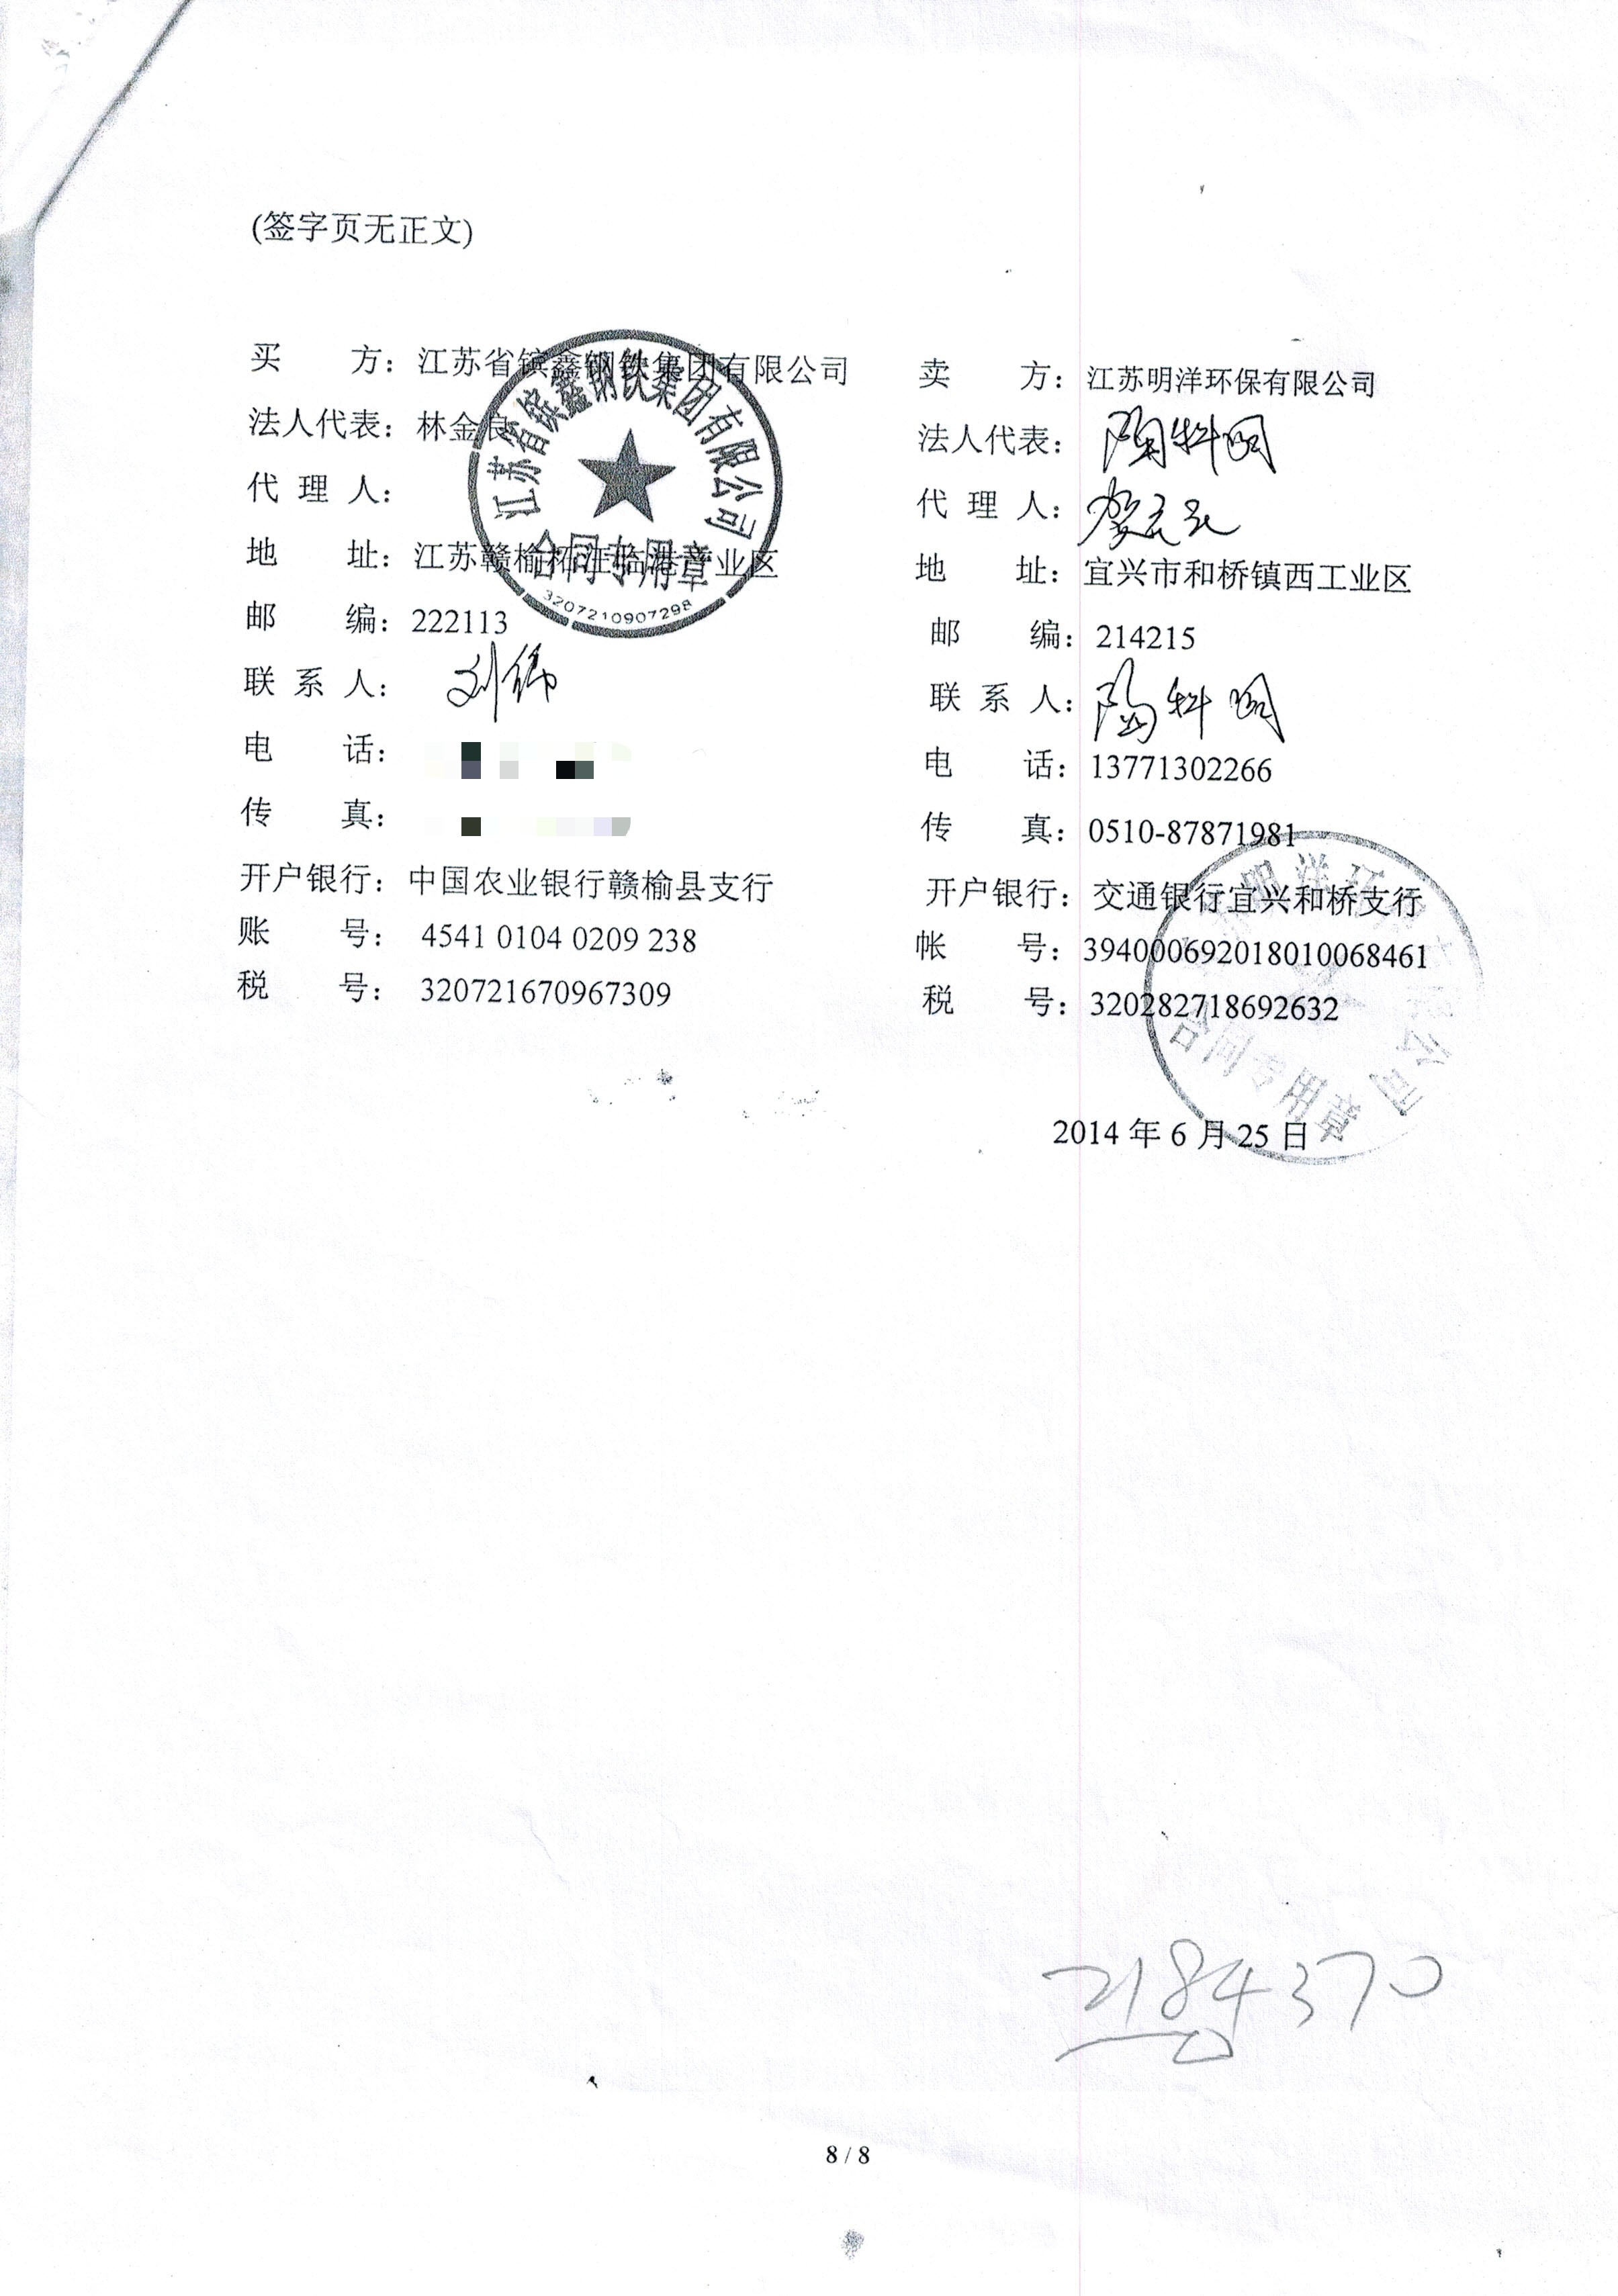 (签字页无正文)
买 方：江苏省镔鑫钢铁集团有限公司
法人代表：林金良
代 理 人：
地 址：江苏赣榆柘汪临港产业区
邮 编：222113
联 系 人：刘
电 话：
传 真：
开户银行：中国农业银行赣榆县支行
账 号：4541 0104 0209 238
税 号：320721670967309
江苏省镔鑫钢铁集团有限公司
合同专用章
3207210907298
卖 方：江苏明洋环保有限公司
法人代表：
代 理 人：
地 址：宜兴市和桥镇西工业区
邮 编：214215
联 系 人：
电 话：13771302266
传 真：0510-87871981
开户银行：交通银行宜兴和桥支行
帐 号：394000692018010068461
税 号：320282718692632
明洋环 公司
合同专用章
2014 年 6 月 25 日
2184370
8 / 8